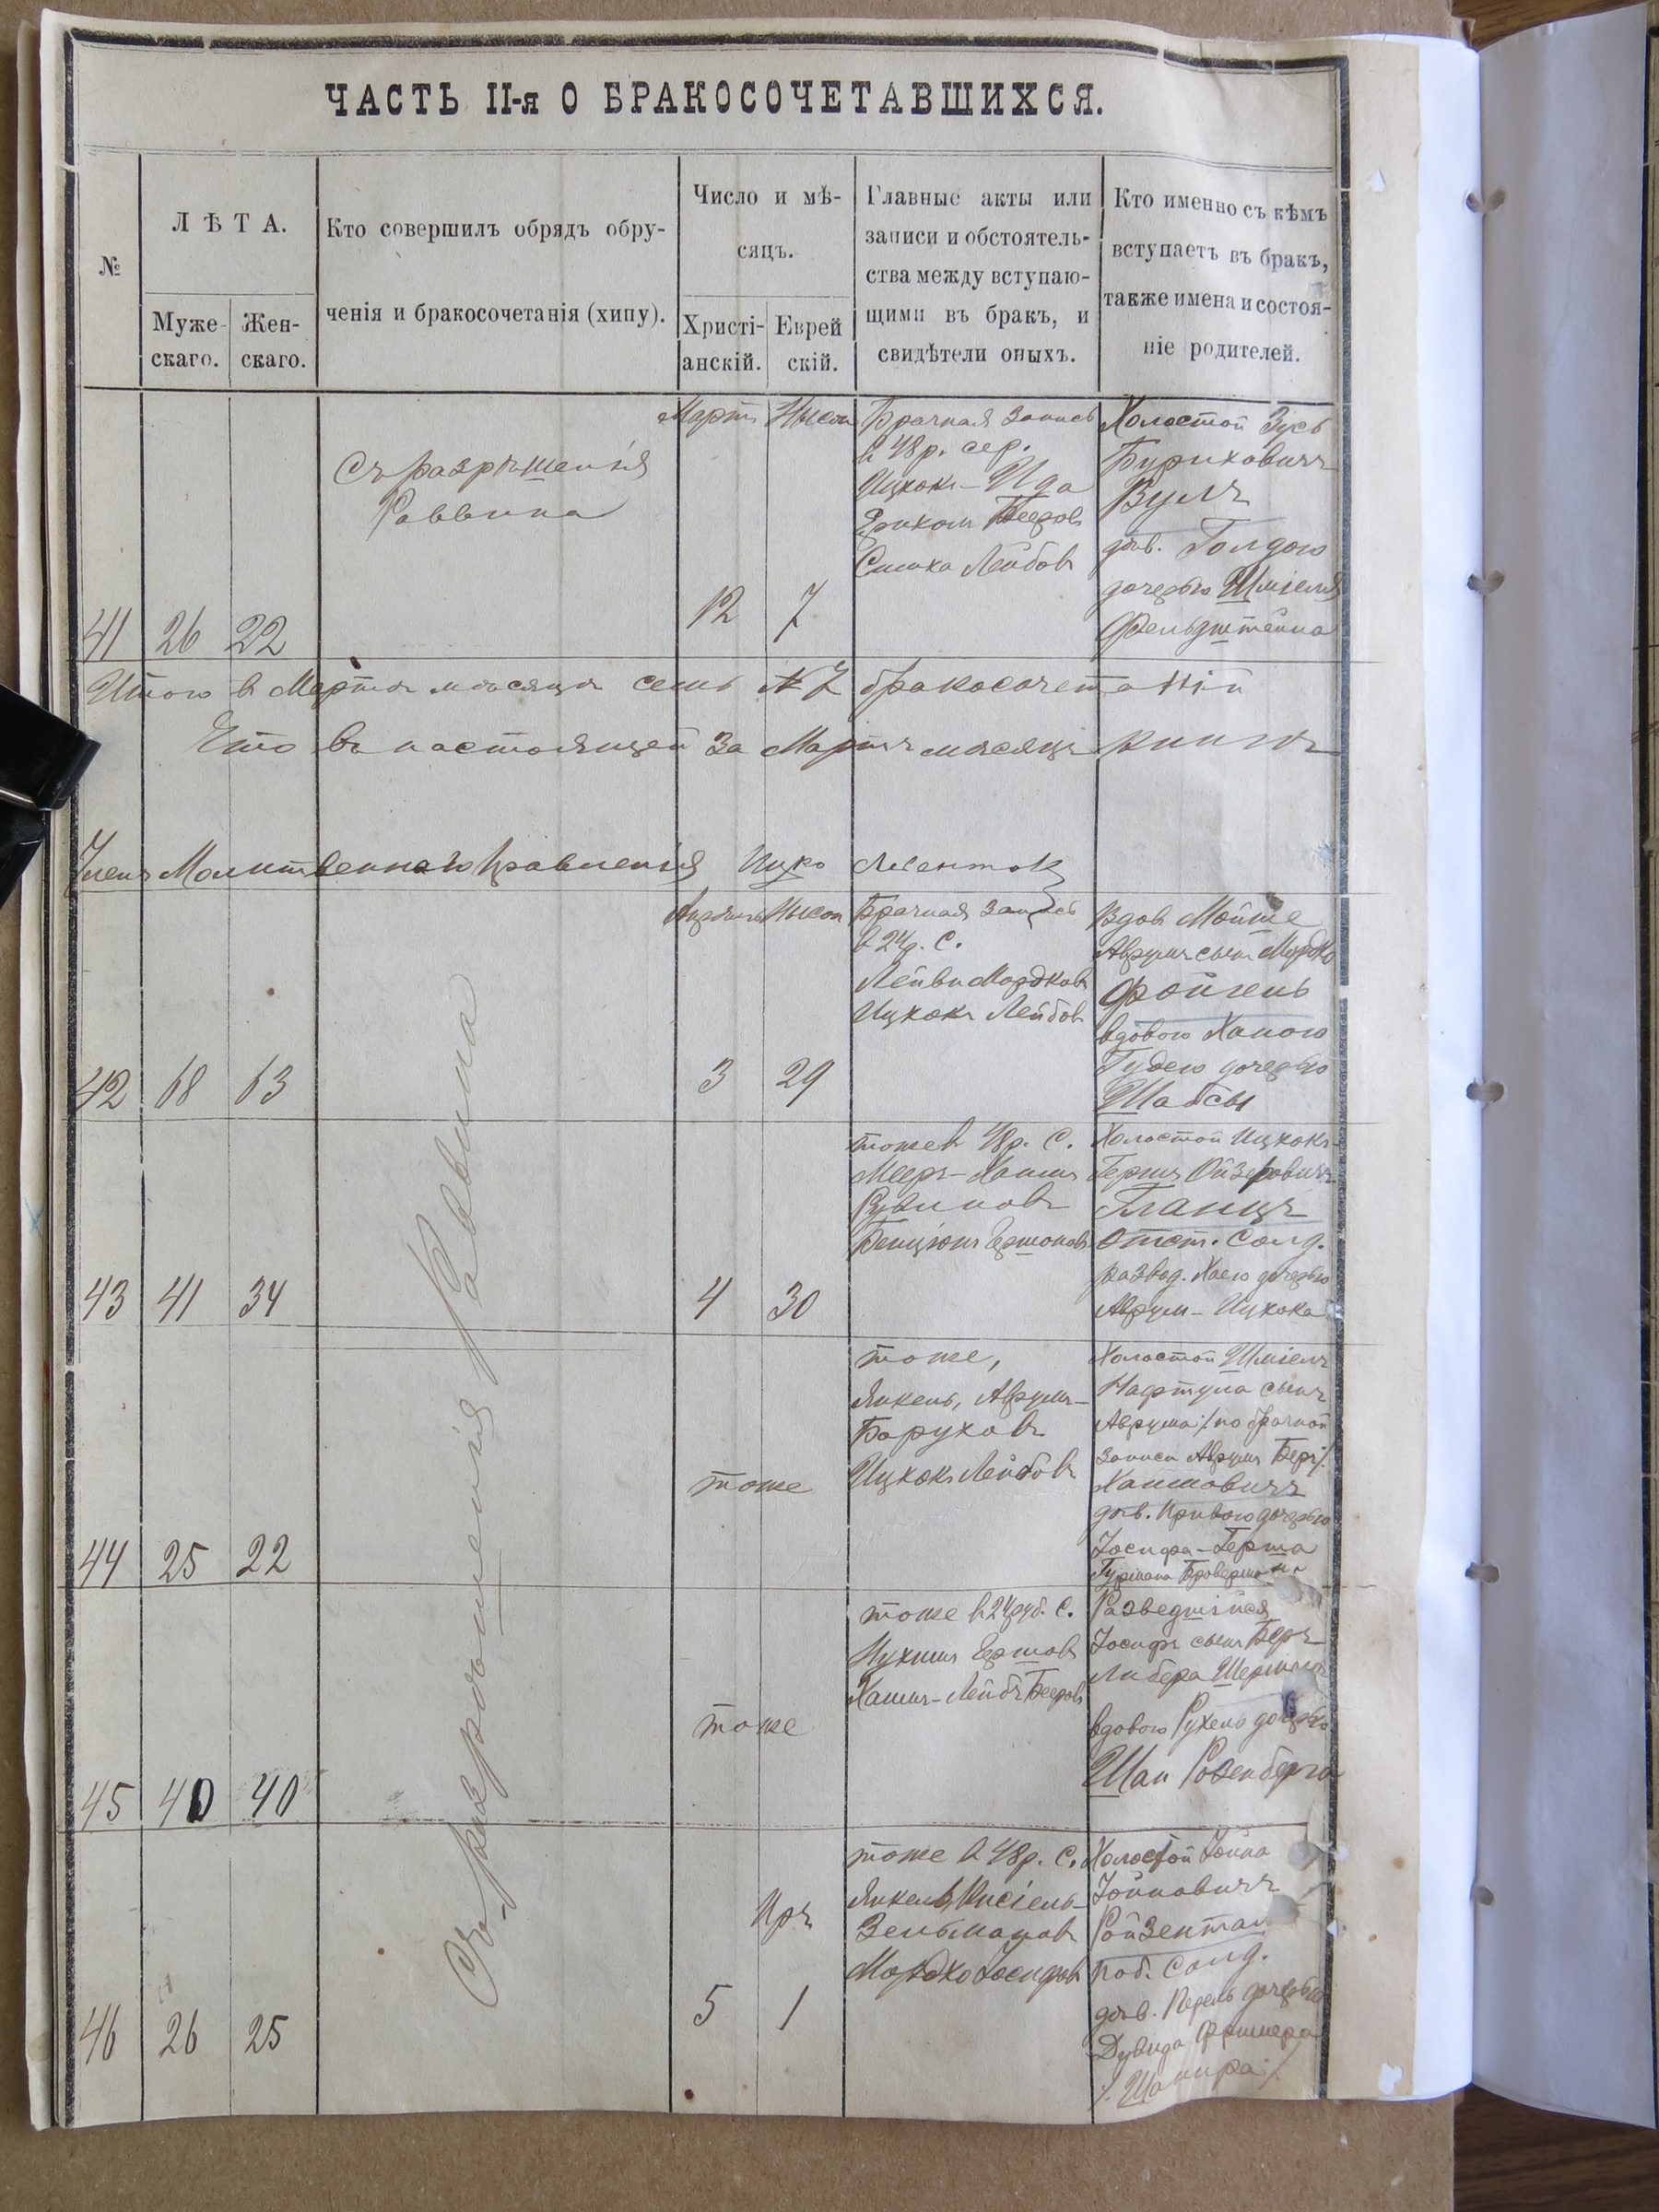 ЧАСТЬ II-я О БРАКОСОЧЕТАВШИХСЯ.
№
ЛѢТА.
Муже-
скаго.
Жен-
скаго.
Кто совершилъ обрядъ обру-
ченія и бракосочетанія (хипу).
Число и мѣ-
сяцъ.
Христі-
анскій.
Еврей
скій.
Главные акты или
записи и обстоятель-
ства между вступаю-
щими въ бракъ, и
свидѣтели оныхъ.
Кто именно съ кѣмъ
вступаетъ въ бракъ,
также имена и состоя-
ніе родителей.
41
26
22
Съ разрѣшенія
Раввина
Мартъ
12
Нысон
7
Брачная запись
в 48 р. сер.
Ицхокъ-
Беров
Лейбовъ
Холостой Зусь
Вулъ
дѣв. Голдою
дочерью Шміеля
Фельдштейна
Итого в Мартѣ мѣсяцѣ семь № 7 бракосочетаній
Что въ настоящей за Мартъ мѣсяцъ книгѣ
Членъ Молитвеннаго Правленія Ицко
42
68
63
Съ разрѣшенія Раввина
Апрѣль
3
Нысон
29
Брачная запись
в 24 р. С.
Мордковъ
Ицхокъ Лейбовъ
Вдов Мойше
Аврумъ сынъ Мордко
Фойгель
вдовою Ханою
дочерью
Шабсы
43
41
34
4
30
тоже в 48 р. С.
Мееръ-Хаимъ
Рувиновъ
Бенціонъ Гершоновъ
Холостой Ицхокъ-
Гершъ Ойзеровичъ
Гланцъ
Отст. Солд.
развод. Хаею дочерью
Аврум-Ицхока
44
25
22
тоже
тоже,
Янкель, Аврумъ-
Баруховъ
Ицхокъ Лейбовъ
Холостой Шміелъ
Нафтула сынъ
Аврума /:по брачной
записи Аврумъ Беръ:/
Хаимовичъ
дѣв. дочерью
Іосифа-Герша
45
40
40
тоже
тоже в 24 руб. С.
Нухимъ Гершовъ
Хаимъ-Лейбъ Беровъ
Разведшійся
Іосифъ сынъ Беръ-
Либера
вдовою Рухель дочерью
Розенберга
46
26
25
5
Иръ
1
тоже в 48 р. С.
Янкель Кисіель-
Зельмановъ
Мордко Іосифовъ
Холостой Іойна
Іойновичъ
Ройзентал
Солд.
дѣв. Перель дочерью
Дувида
/:Шапира:/